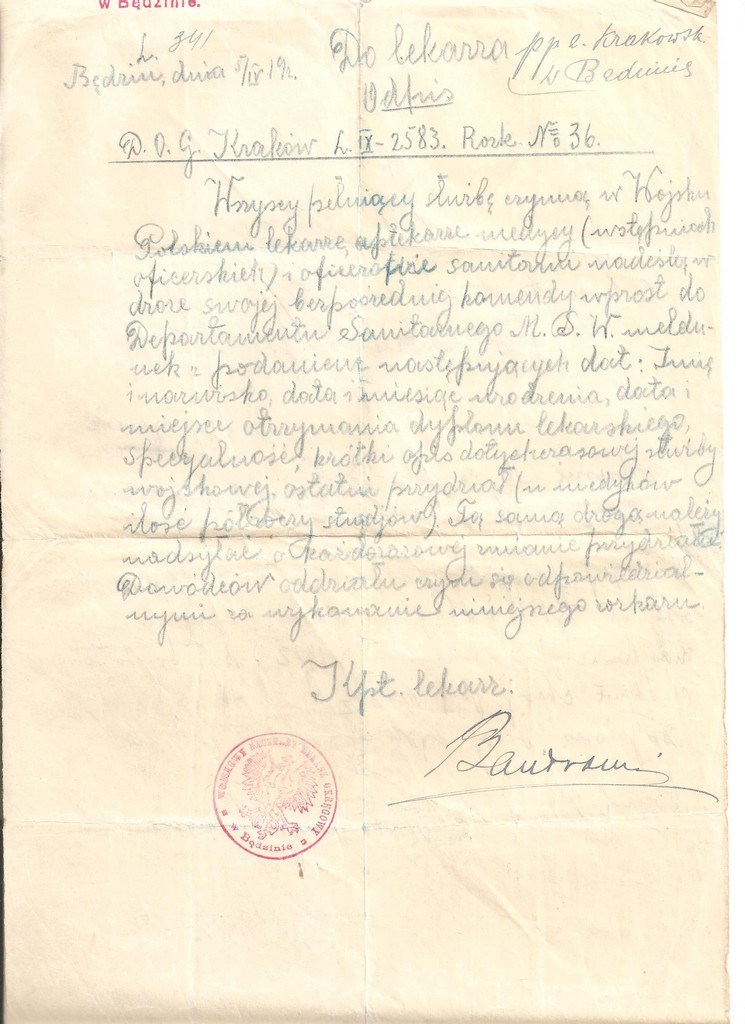 w Będzinie.
L. 341
Do lekarza pp e. Krakowsk.
Będzin, dnia 5/IV 19r. w Będzinie
Odpis
D. O. G. Kraków L. IX - 2583. Rozk. № 36.
Wszyscy pełniący służbę czynną w Wojsku
Polskiem lekarze, aptekarze medycy (w stopniach
oficerskich) i oficerowie sanitarni nadeślą w
drodze swojej bezpośredniej komendy wprost do
Departamentu Sanitarnego M. S. W. meldu-
nek z podaniem następujących dat: Imię
i nazwisko, data i miesiąc urodzenia, data i
miejsce otrzymania dyplomu lekarskiego,
specyalność, krótki opis dotychczasowej służby
wojskowej, ostatni przydział (u medyków
ilość półroczy studjów). Tą samą drogą należy
nadsyłać o każdorazowej zmianie przydziału.
Dowódców oddziału czyni się odpowiedzial-
nymi za wykonanie niniejszego rozkazu.
Kpt. lekarz:
WOJSKOWY NACZELNY LEKARZ OKRĘGOWY
w Będzinie